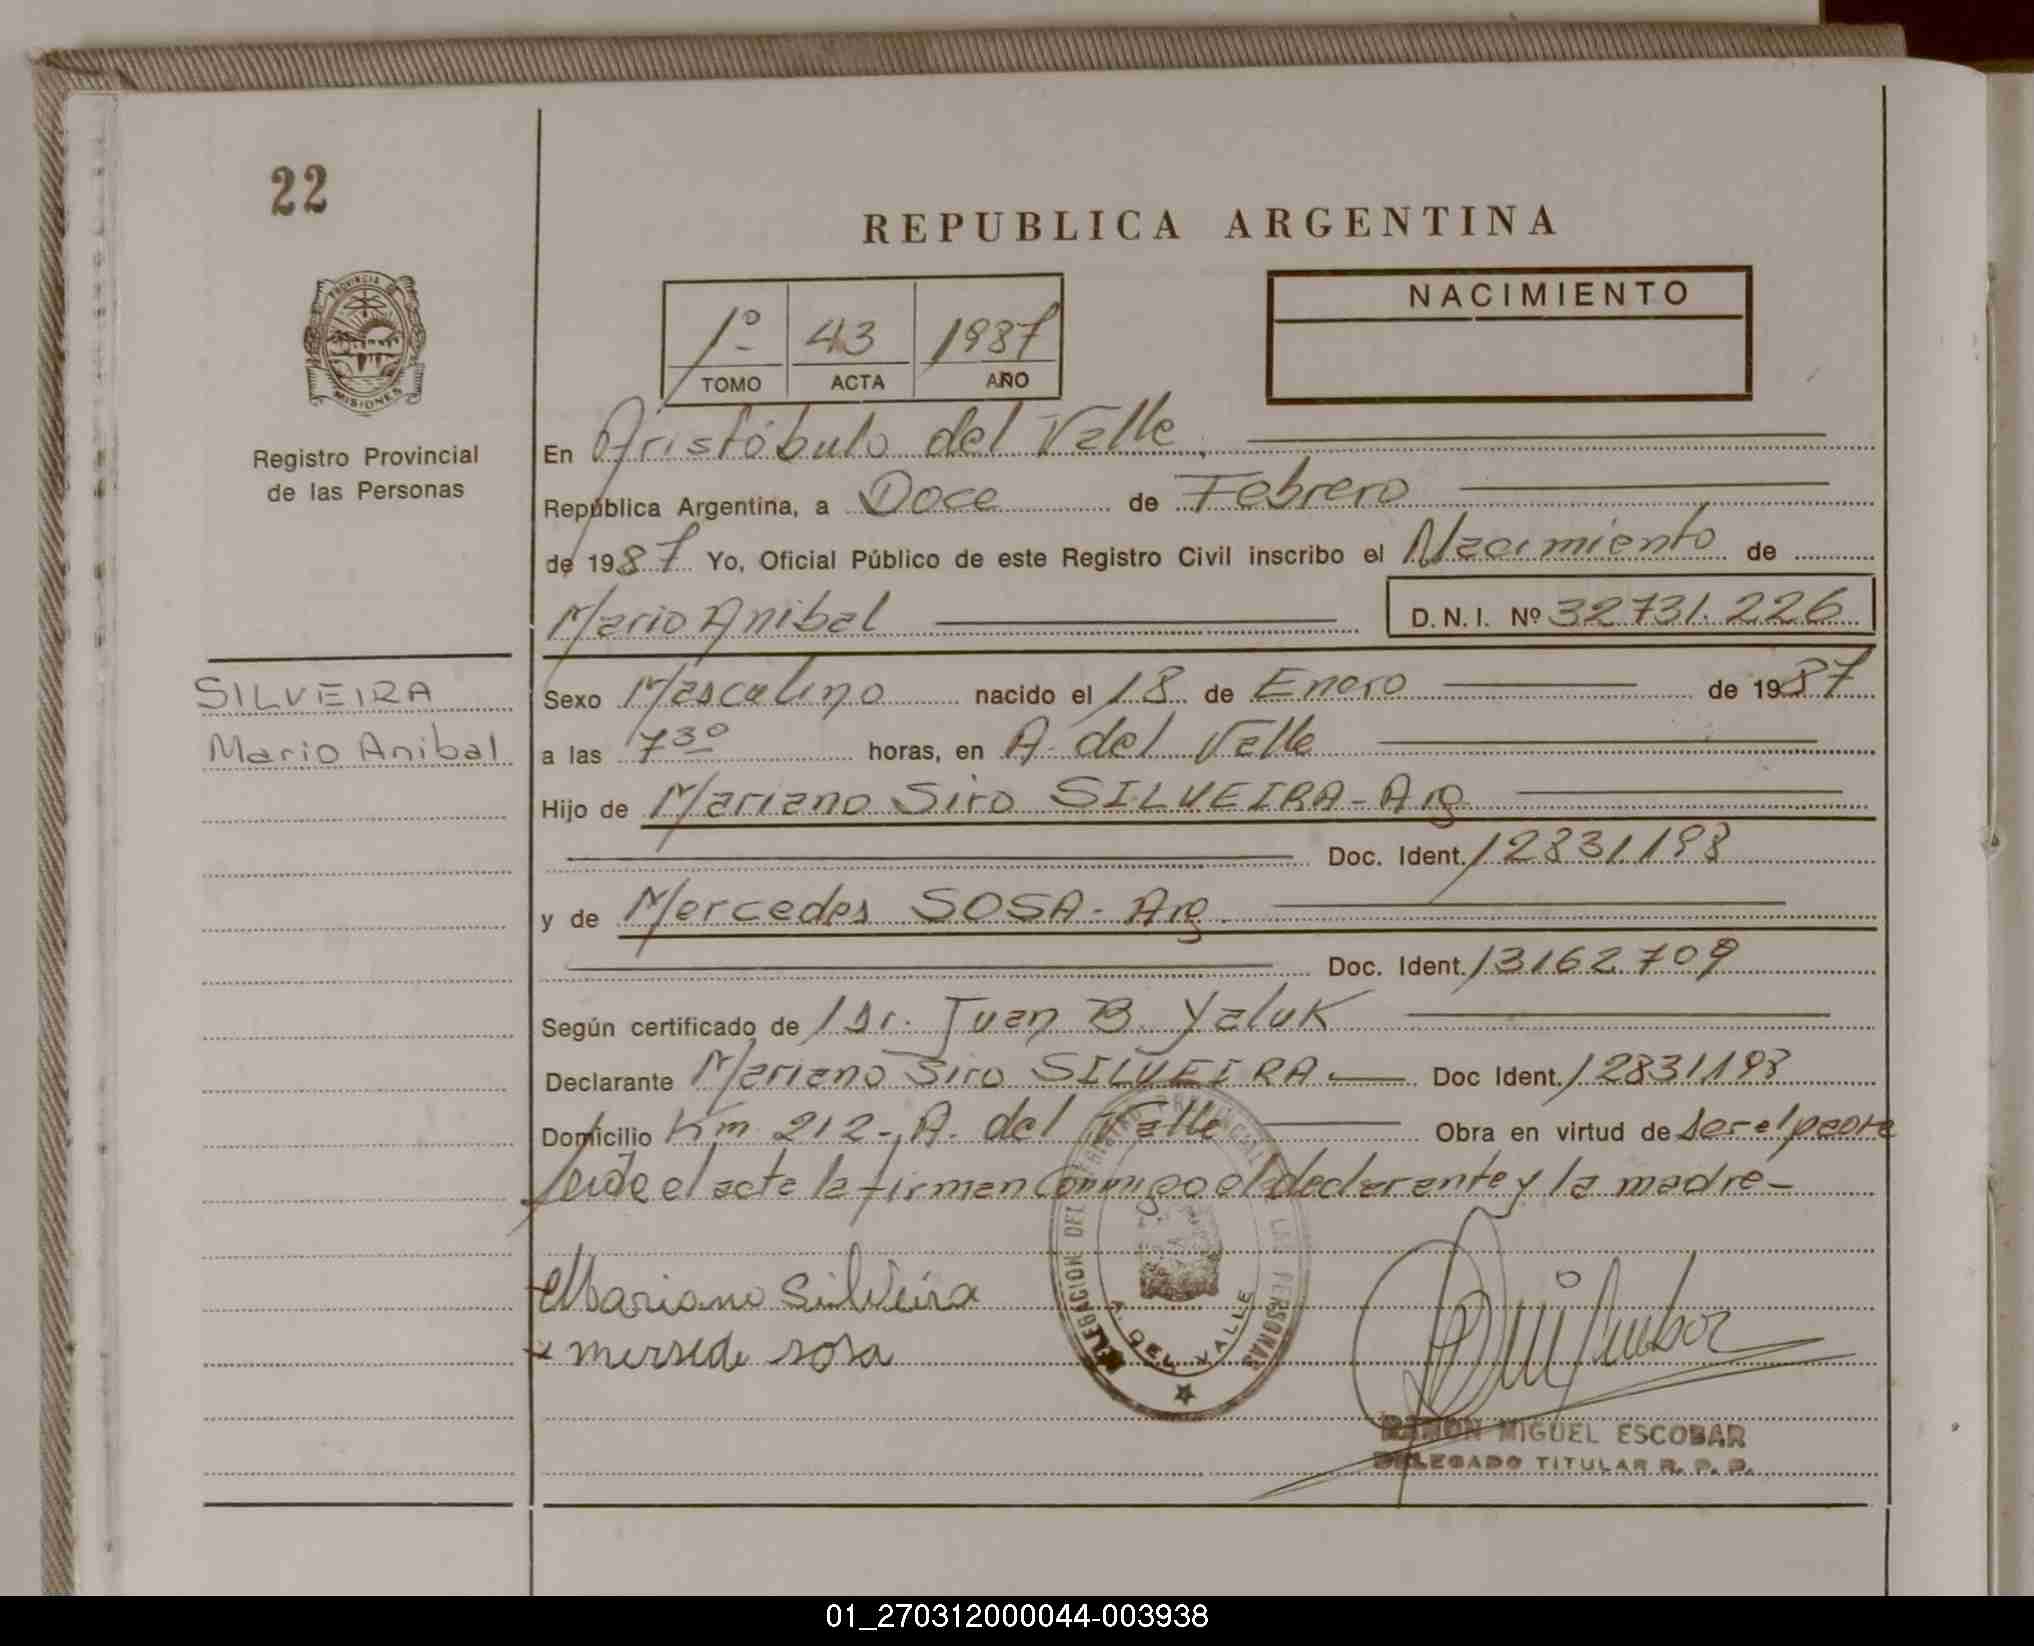 22
REPUBLICA ARGENTINA
PROVINCIA DE
MISIONES
Registro Provincial
de las Personas
1º 43 1987
TOMO ACTA AÑO
NACIMIENTO
En Aristóbulo del Valle
República Argentina, a Doce de Febrero
de 1987 Yo, Oficial Público de este Registro Civil inscribo el Nacimiento de
Mario Anibal D.N.I. Nº 32731.226
SILVEIRA
Mario Anibal
Sexo Masculino nacido el 18 de Enero de 1987
a las 7 30 horas, en A. del Valle
Hijo de Mariano Siro SILVEIRA - Arg
Doc. Ident. 12831198
y de Mercedes SOSA - Arg.
Doc. Ident. 13162709
Según certificado de Dr. Juan B. Yaluk
Declarante Mariano Siro SILVEIRA Doc Ident. 12831198
Domicilio Km 212 - A. del Valle Obra en virtud de ser el padre
Leída el acta la firman conmigo el declarante y la madre -
Mariano Silveira
mersede sosa
DELEGACION DEL REGISTRO PROVINCIAL DE LAS PERSONAS
A. DEL VALLE
RAMON MIGUEL ESCOBAR
DELEGADO TITULAR R. P. P.
01_270312000044-003938